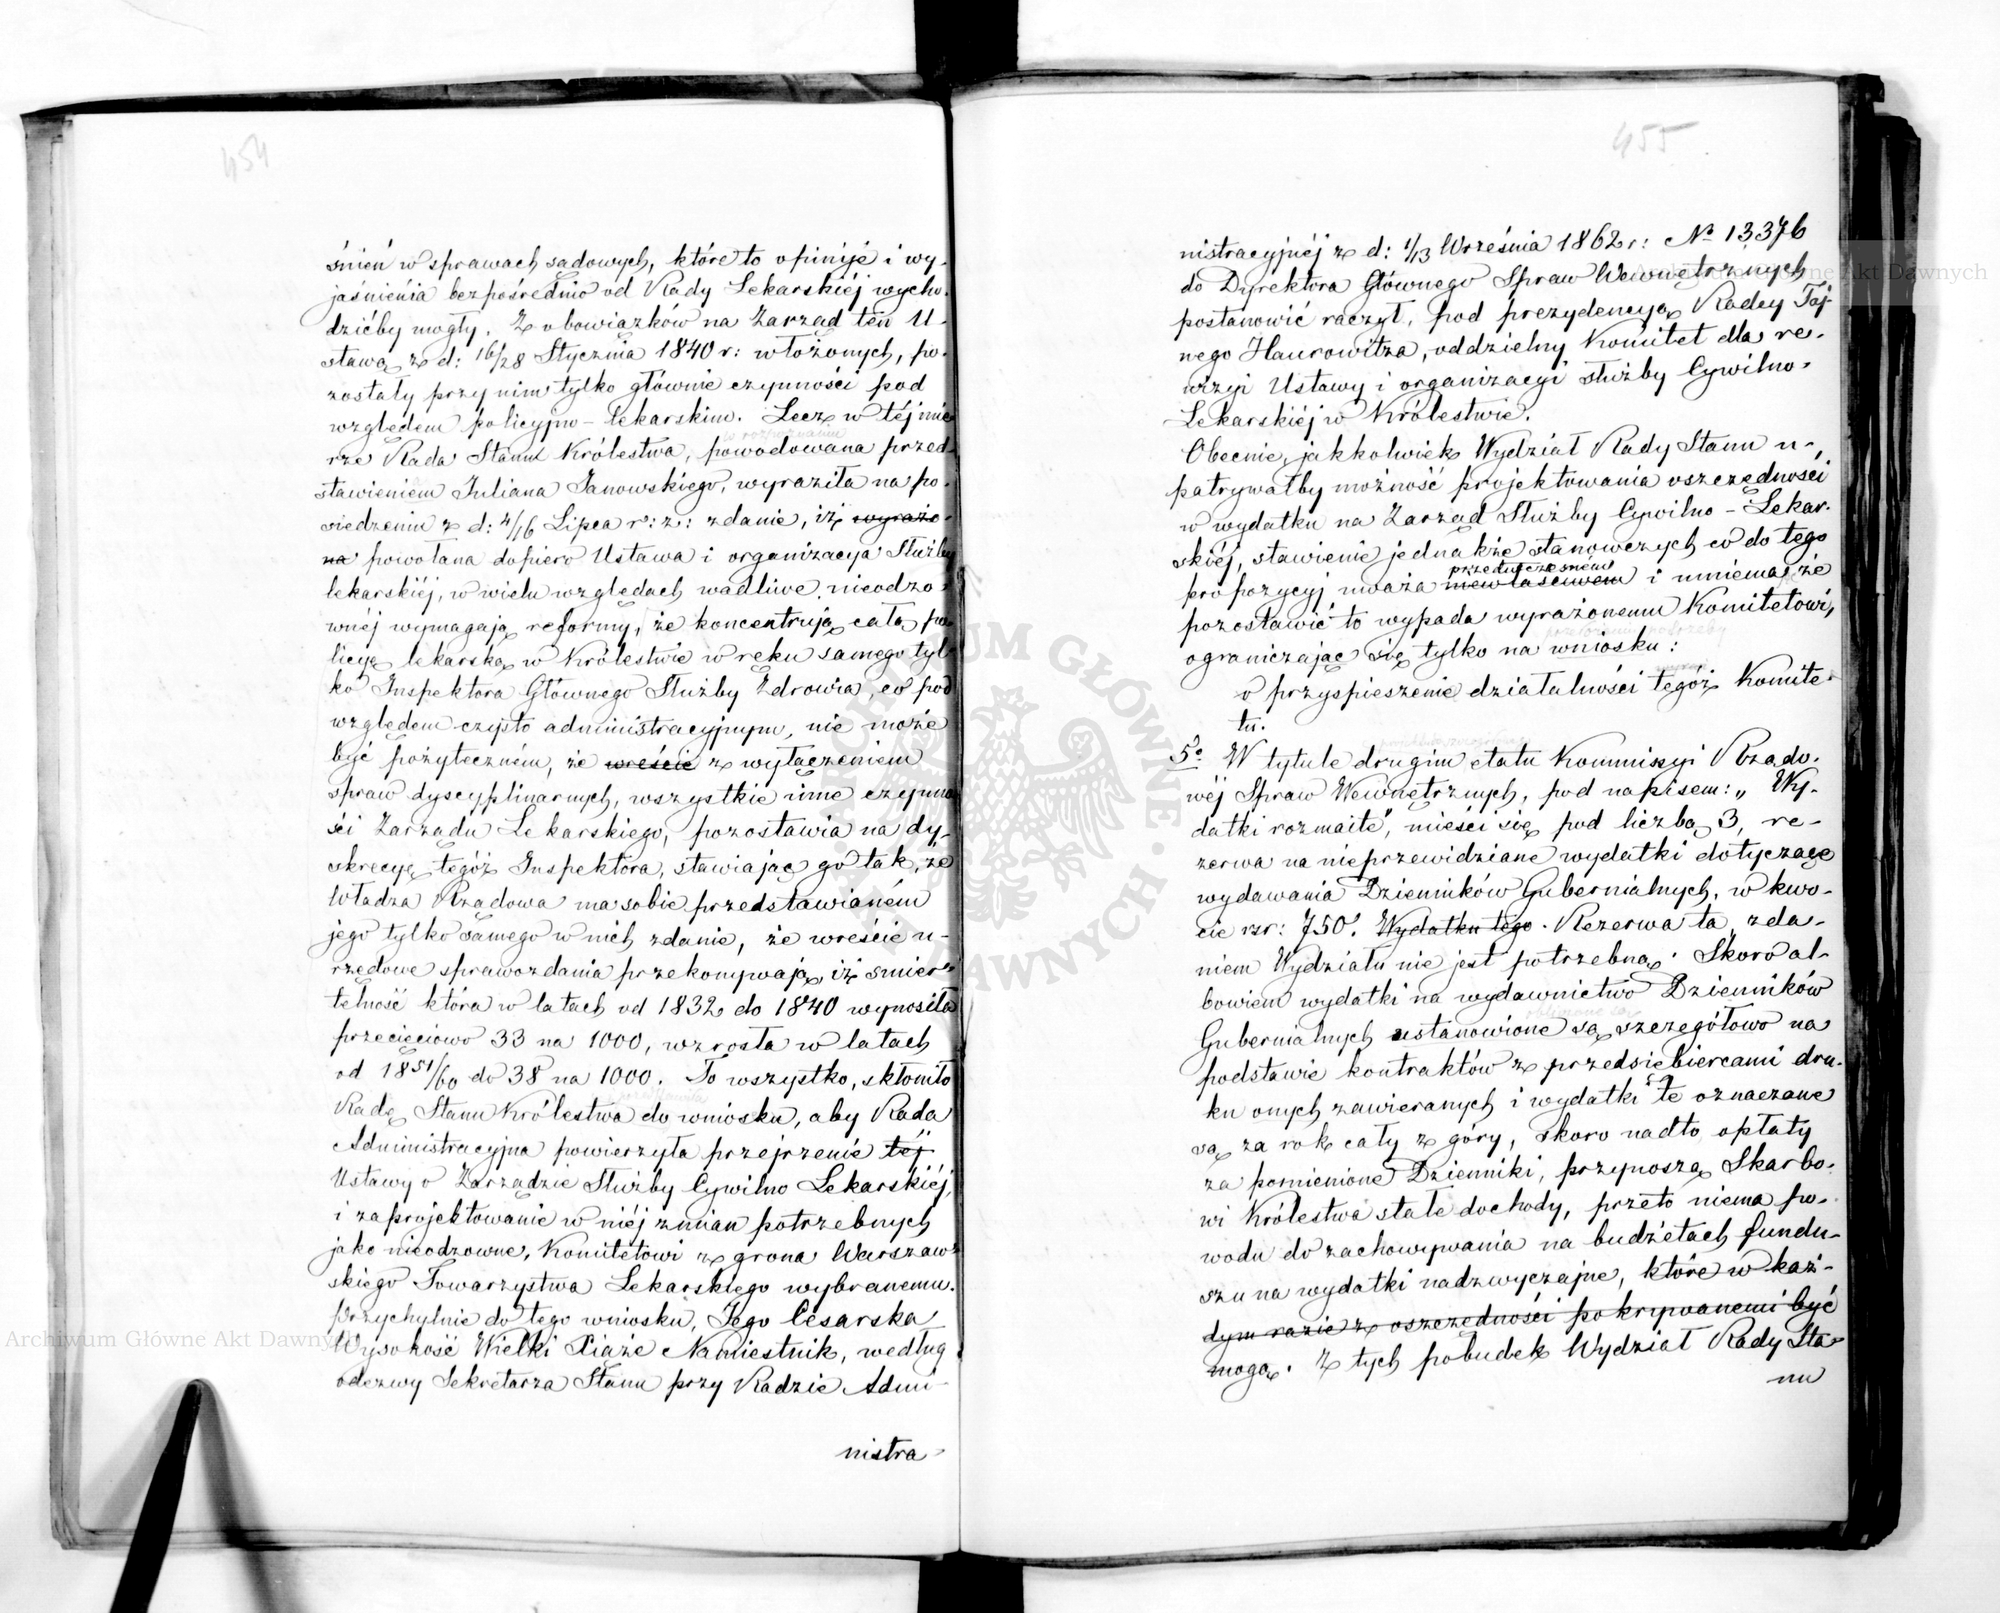 454
śnień w sprawach sądowych, które to opinije i wy-
jaśnienia bezpośrednio od Rady Lekarskiéj wycho-
dzićby mogły. Z obowiązków na Zarząd ten U-
stawą z d: 16/28 Stycznia 1840 r: włożonych, po-
zostały przy nim tylko głównie czynności pod
względem policyjno-lekarskim. Lecz w téj mie-
rze Rada Stanu Królestwa, powodowana przed-
stawieniem Juliana Janowskiego, wyraziła na po-
siedzeniu z d: 4/16 Lipca r: z: zdanie, iż wyrażo-
na powołana dopiero Ustawa i organizacya Służby
lekarskiéj, w wielu względach wadliwe, nieodzo-
wnéj wymagają reformy, że koncentrują całą po-
licyę lekarską w Królestwie w ręku samego tyl-
ko Inspektora Głównego Służby Zdrowia, co pod
względem czysto administracyjnym, nie może
być pożyteczném, że wreście z wyłączeniem
spraw dyscyplinarnych, wszystkie inne czynno-
ści Zarządu Lekarskiego, pozostawia na dy-
skrecyę tegóż Inspektora, stawiając go tak, że
Władza Rządowa ma sobie przedstawianém
jego tylko samego w nich zdanie, że wreście u-
rzędowe sprawozdania przekonywają, iż śmier-
telność która w latach od 1832 do 1840 wynosiła
przecięciowo 33 na 1000, wzrosła w latach
od 1851/60 do 38 na 1000. To wszystko, skłoniło
Radę Stanu Królestwa do wniosku, aby Rada
Administracyjna powierzyła przejrzenie téj
Ustawy o Zarządzie Służby Cywilno Lekarskiéj,
i zaprojektowanie w niéj zmian potrzebnych
jako nieodzowne, Komitetowi z grona Warszaw-
skiego Towarzystwa Lekarskiego wybranemu.
Przychylnie do tego wniosku, Jego Cesarska
Wysokość Wielki Xiąże Namiestnik, według
odezwy Sekretarza Stanu przy Radzie Admi-
nistra-
455
nistracyjnéj z d: 1/13 Września 1862 r: No 13,376
do Dyrektora Głównego Spraw Wewnętrznych
postanowić raczył, pod prezydencyą Radcy Taj-
nego Haurowitza, oddzielny Komitet dla re-
wizyi Ustawy i organizacyi służby Cywilno-
Lekarskiéj w Królestwie.
Obecnie, jakkolwiek Wydział Rady Stanu u-
patrywałby możność projektowania oszczędności
w wydatku na Zarząd Służby Cywilno-Lekar-
skiéj, stawienie jednakże stanowczych co do tego
przedwczesném
propozycyj uważa niewłaściwém i mniema, że
pozostawić to wypada wyrażonemu Komitetowi,
ograniczając się tylko na wniosku:
o przyspieszenie działalności tegóż Komite-
tu.
5o W tytule drugim etatu Kommissyi Rządo-
wéj Spraw Wewnętrznych, pod napisem: „Wy-
datki rozmaite”, mieści się pod liczbą 3, re-
zerwa na nieprzewidziane wydatki dotyczące
wydawania Dzienników Gubernialnych, w kwo-
cie rsr: 750. Wydatku tego. Rezerwa ta, zda-
niem Wydziału nie jest potrzebną. Skoro al-
bowiem wydatki na wydawnictwo Dzienników
Gubernialnych ustanowione są szczegółowo na
podstawie kontraktów z przedsiębiercami dru-
ku onych zawieranych i wydatki te oznaczane
są za rok cały z góry, skoro nadto opłaty
za pomienione Dzienniki, przynoszą Skarbo-
wi Królestwa stałe dochody, przeto niema po-
wodu do zachowywania na budżetach fundu-
szu na wydatki nadzwyczajne, które w każ-
dym razie z oszczędności pokrywanemi być
mogą. Z tych pobudek Wydział Rady Sta-
nu
Archiwum Główne Akt Dawnych
Archiwum Główne Akt Dawnych